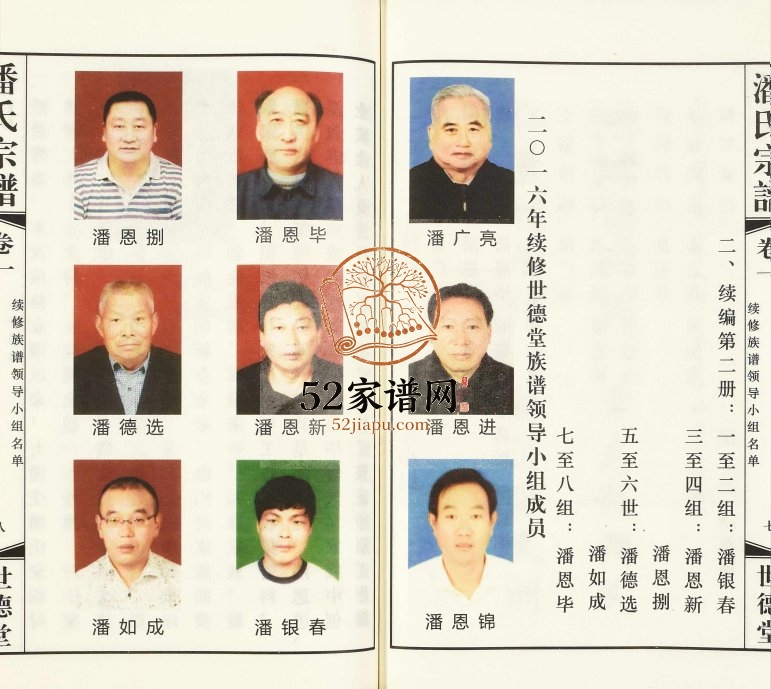 潘氏宗谱
卷一
续修族谱领导小组名单
七
世德堂
二、续编第二册：一至二组：潘银春
三至四组：潘恩新
潘恩捌
五至六世：潘德选
潘如成
七至八组：潘恩毕
二〇一六年续修世德堂族谱领导小组成员
潘广亮
潘恩进
潘恩锦
潘恩毕
潘恩新
潘银春
潘恩捌
潘德选
潘如成
潘氏宗谱
卷一
续修族谱领导小组名单
八
世德堂
52家谱网
52jiapu.com